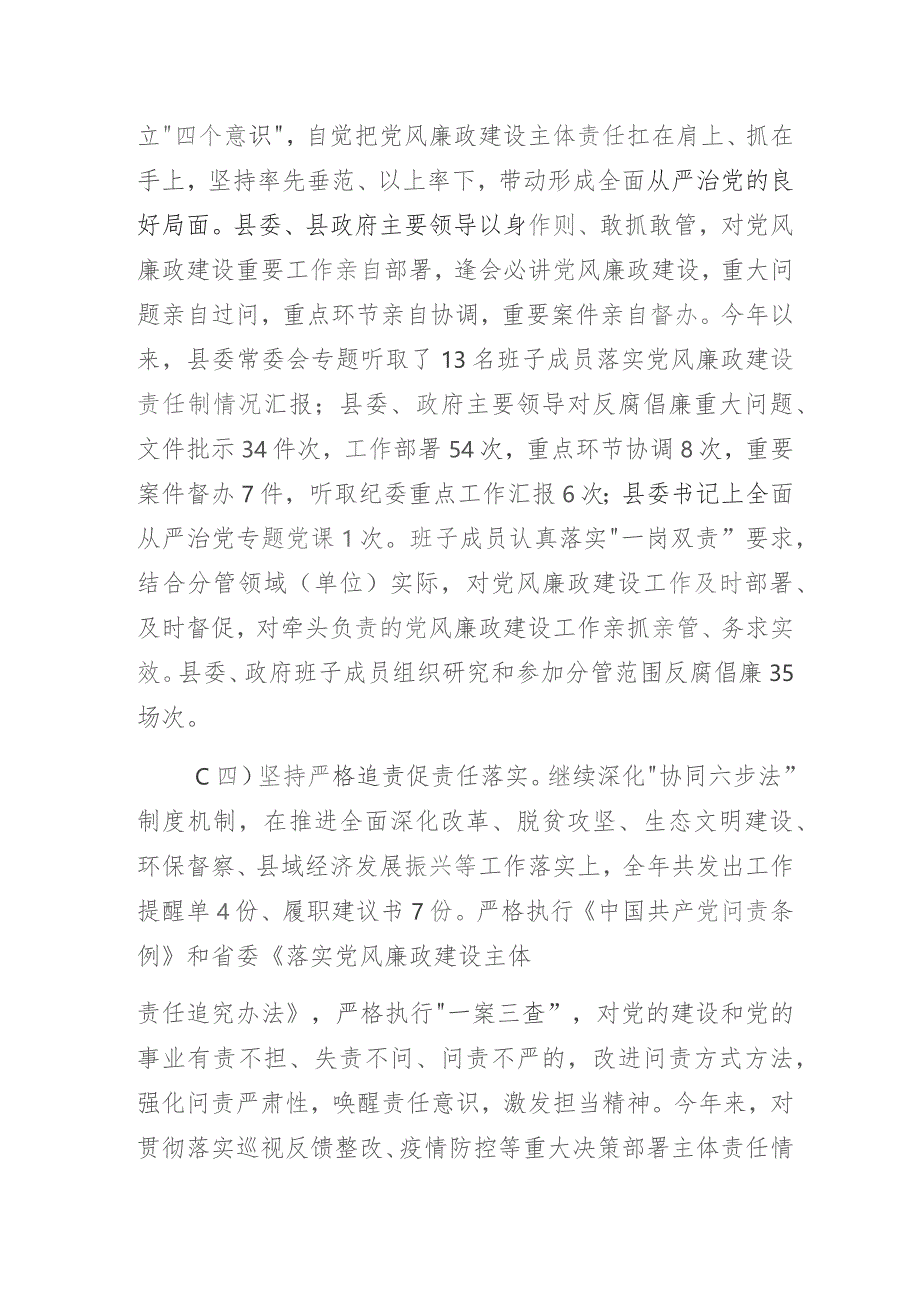 立"四个意识"，自觉把党风廉政建设主体责任扛在肩上、抓在
手上，坚持率先垂范、以上率下，带动形成全面从严治党的良
好局面。县委、县政府主要领导以身作则、敢抓敢管，对党风
廉政建设重要工作亲自部署，逢会必讲党风廉政建设，重大问
题亲自过问，重点环节亲自协调，重要案件亲自督办。今年以
来，县委常委会专题听取了13名班子成员落实党风廉政建设
责任制情况汇报；县委、政府主要领导对反腐倡廉重大问题、
文件批示34件次，工作部署54次，重点环节协调8次，重要
案件督办7件，听取纪委重点工作汇报6次；县委书记上全面
从严治党专题党课1次。班子成员认真落实"一岗双责”要求，
结合分管领域（单位）实际，对党风廉政建设工作及时部署、
及时督促，对牵头负责的党风廉政建设工作亲抓亲管、务求实
效。县委、政府班子成员组织研究和参加分管范围反腐倡廉35
场次。
C四）坚持严格追责促责任落实。继续深化"协同六步法”
制度机制，在推进全面深化改革、脱贫攻坚、生态文明建设、
环保督察、县域经济发展振兴等工作落实上，全年共发出工作
提醒单4份、履职建议书7份。严格执行《中国共产党问责条
例》和省委《落实党风廉政建设主体
责任追究办法》，严格执行"一案三查”，对党的建设和党的
事业有责不担、失责不问、问责不严的，改进问责方式方法，
强化问责严肃性，唤醒责任意识，激发担当精神。今年来，对
贯彻落实巡视反馈整改、疫情防控等重大决策部署主体责任情